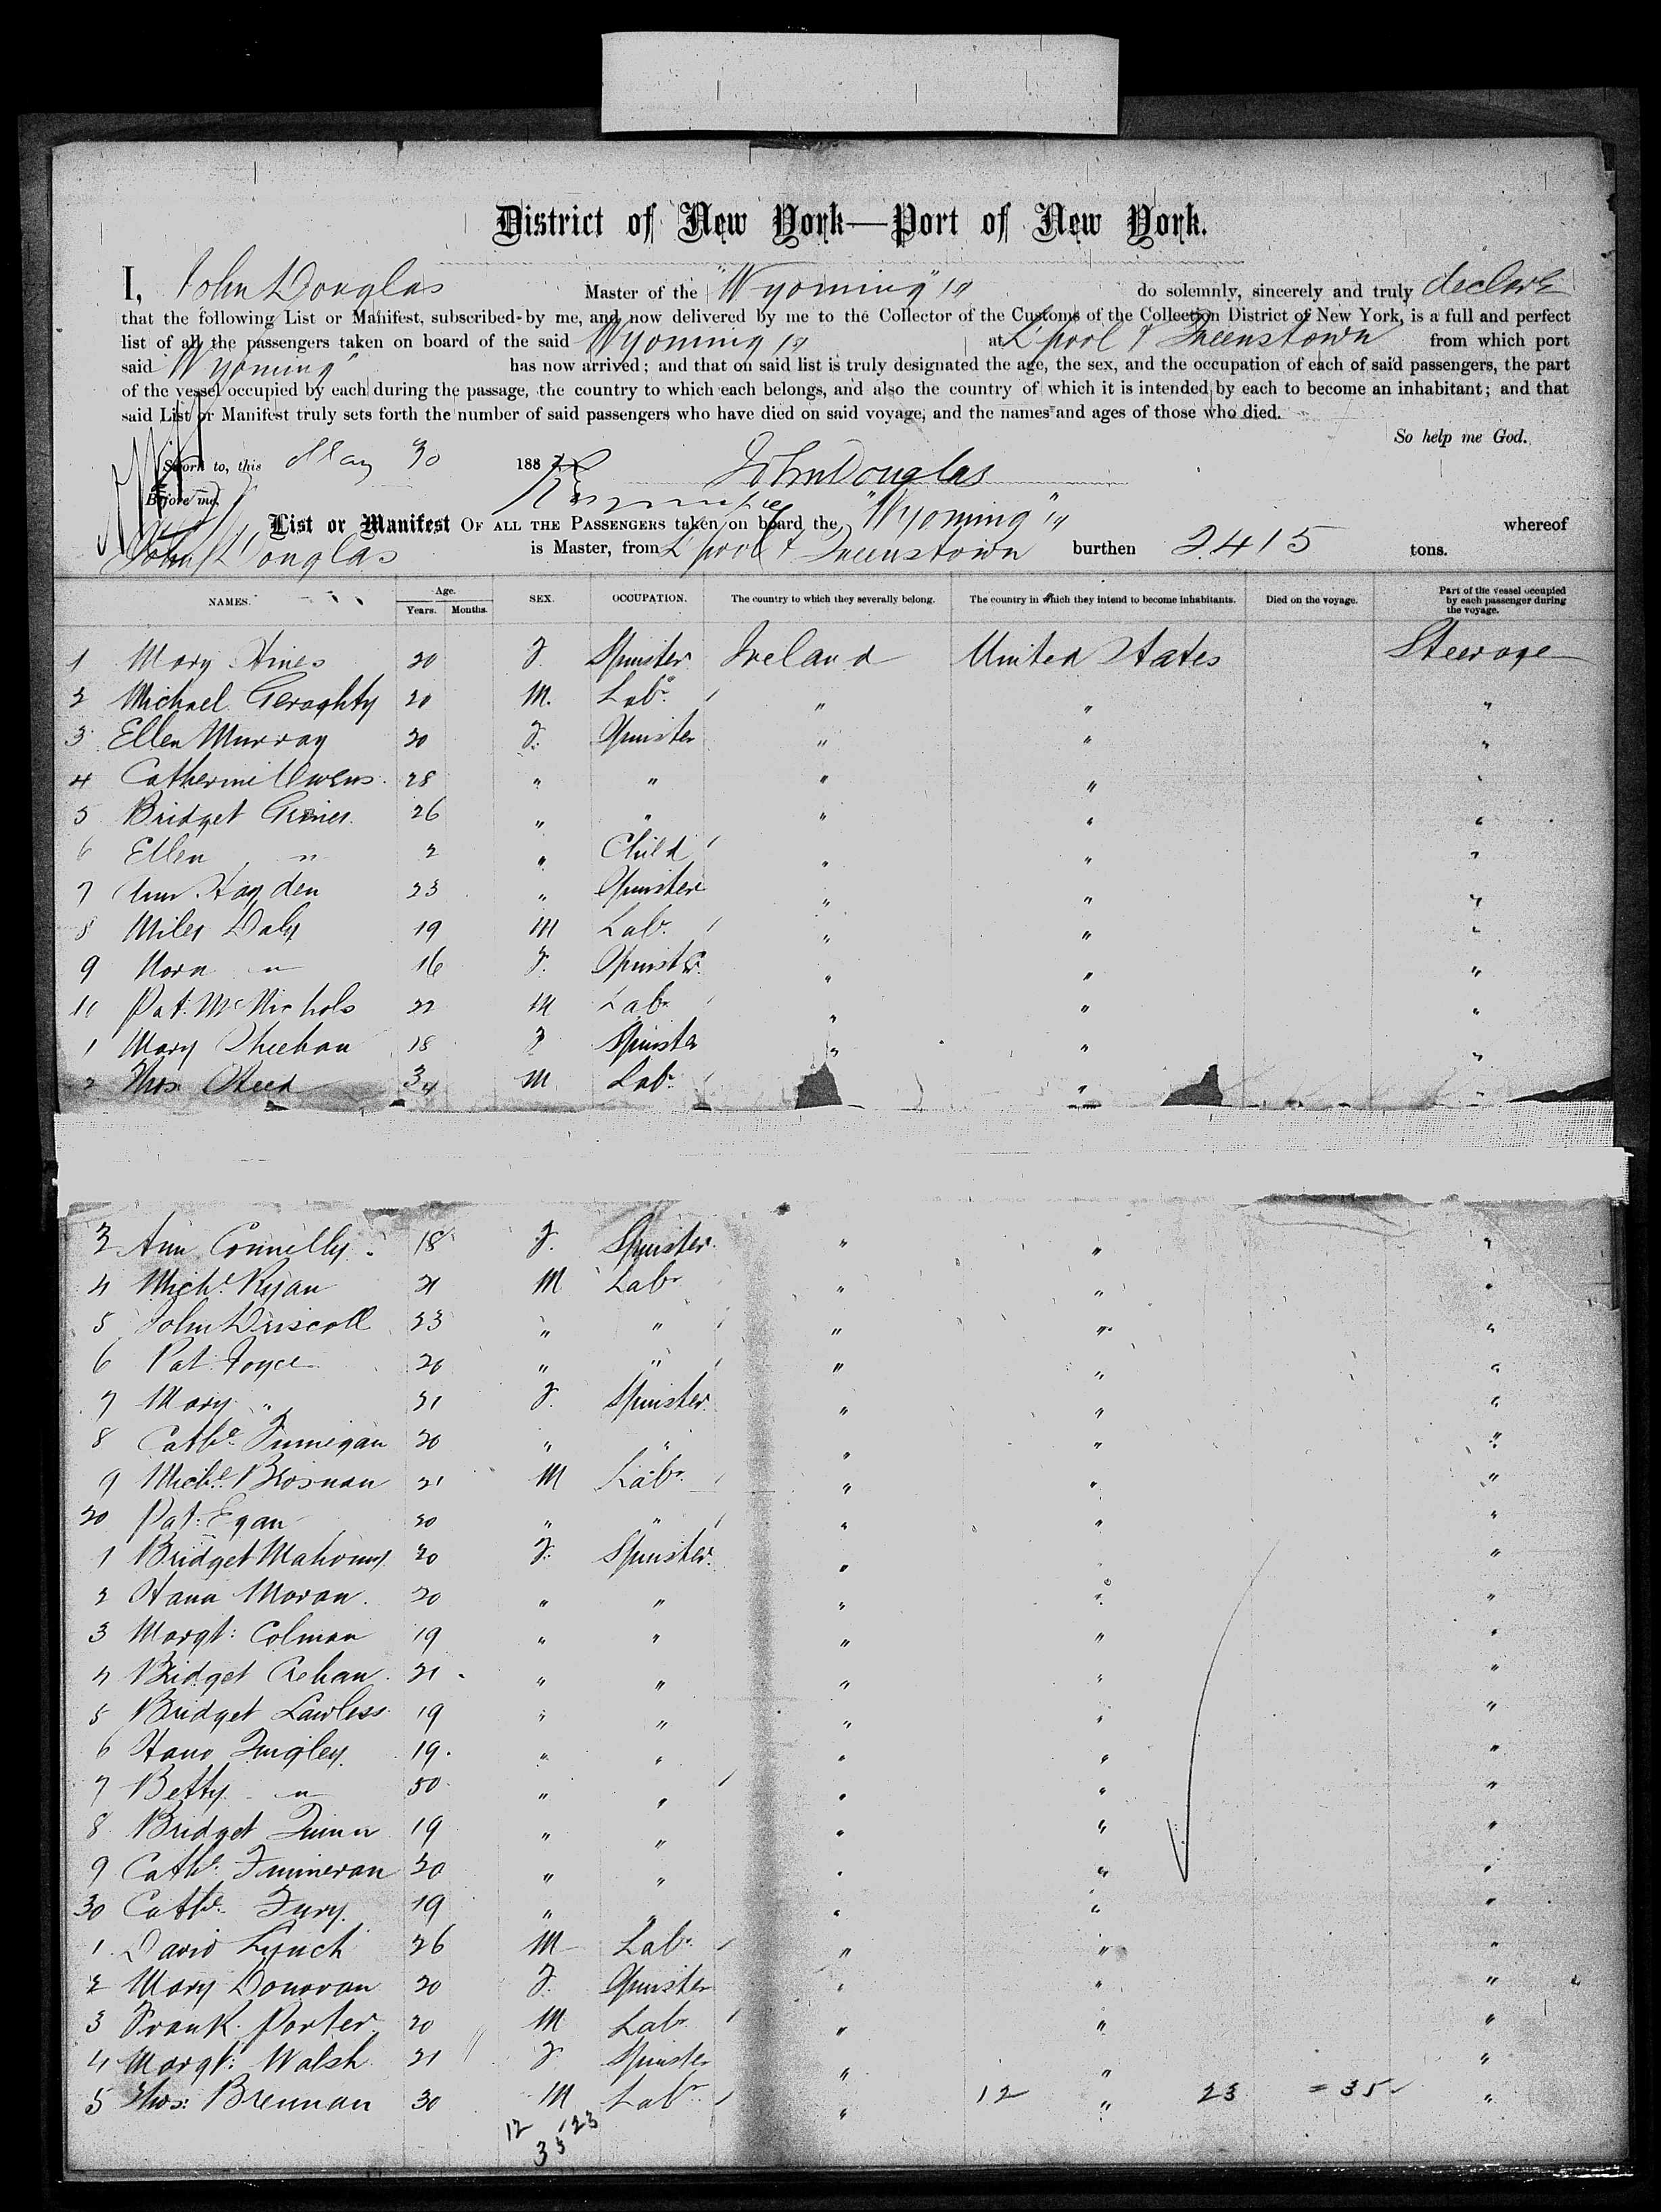 District of New York—Port of New York.
I, John Douglas Master of the "Wyoming" do solemnly, sincerely and truly declare
that the following List or Manifest, subscribed by me, and now delivered by me to the Collector of the Customs of the Collection District of New York, is a full and perfect
list of all the passengers taken on board of the said Wyoming at L'pool & Queenstown from which port
said "Wyoming" has now arrived; and that on said list is truly designated the age, the sex, and the occupation of each of said passengers, the part
of the vessel occupied by each during the passage, the country to which each belongs, and also the country of which it is intended by each to become an inhabitant; and that
said List or Manifest truly sets forth the number of said passengers who have died on said voyage, and the names and ages of those who died.
So help me God.
Sworn to, this May 30 188 John Douglas
Before me,
List or Manifest OF ALL THE PASSENGERS taken on board the "Wyoming" whereof
John Douglas is Master, from L'pool & Queenstown burthen 2415 tons.
NAMES. Age. Years. Months. SEX. OCCUPATION. The country to which they severally belong. The country in which they intend to become inhabitants. Died on the voyage. Part of the vessel occupied by each passenger during the voyage.
1 Mary Hines 20 F. Spinster Ireland United States Steerage
2 Michael Geraghty 20 M. Labr " " "
3 Ellen Murray 20 F. Spinster " " "
4 Catherine Owens 28 " " " " "
5 Bridget 26 " " " " "
6 Ellen " 2 " Child " " "
7 Ann Hayden 23 " Spinster " " "
8 Miles Daly 19 M Labr " " "
9 Nora " 16 F. Spinster " " "
10 Pat. McNichols 22 M Labr " " "
1 Mary Sheehan 18 F Spinster " " "
2 Thos. 34 M Labr "
3 Ann Connelly 18 F. Spinster " " "
4 Michl Ryan 21 M Labr " " "
5 John Driscoll 23 " " " " "
6 Pat Joyce 20 " " " " "
7 Mary " 21 F. Spinster " " "
8 Cathe Finnegan 20 " " " " "
9 Michl Brosnan 21 M Labr " " "
20 Pat: Egan 20 " " " " "
1 Bridget Mahoney 20 F. Spinster " " "
2 Hana Moran 20 " " " " "
3 Margt: Colman 19 " " " " "
4 Bridget Crehan 21 " " " " "
5 Bridget Lawless 19 " " " " "
6 Hano Quigley 19 " " " " "
7 Betty " 50 " " " " "
8 Bridget Quinn 19 " " " " "
9 Cathe Finneran 20 " " " " "
30 Cathe Fury 19 " " " " "
1 David Lynch 26 M Labr " " "
2 Mary Donovan 20 F. Spinster " " "
3 Frank Porter 20 M Labr " " "
4 Margt: Walsh 21 F Spinster " " "
5 Thos: Brennan 30 M Labr " " "
12 23 = 35
12 / 23
35